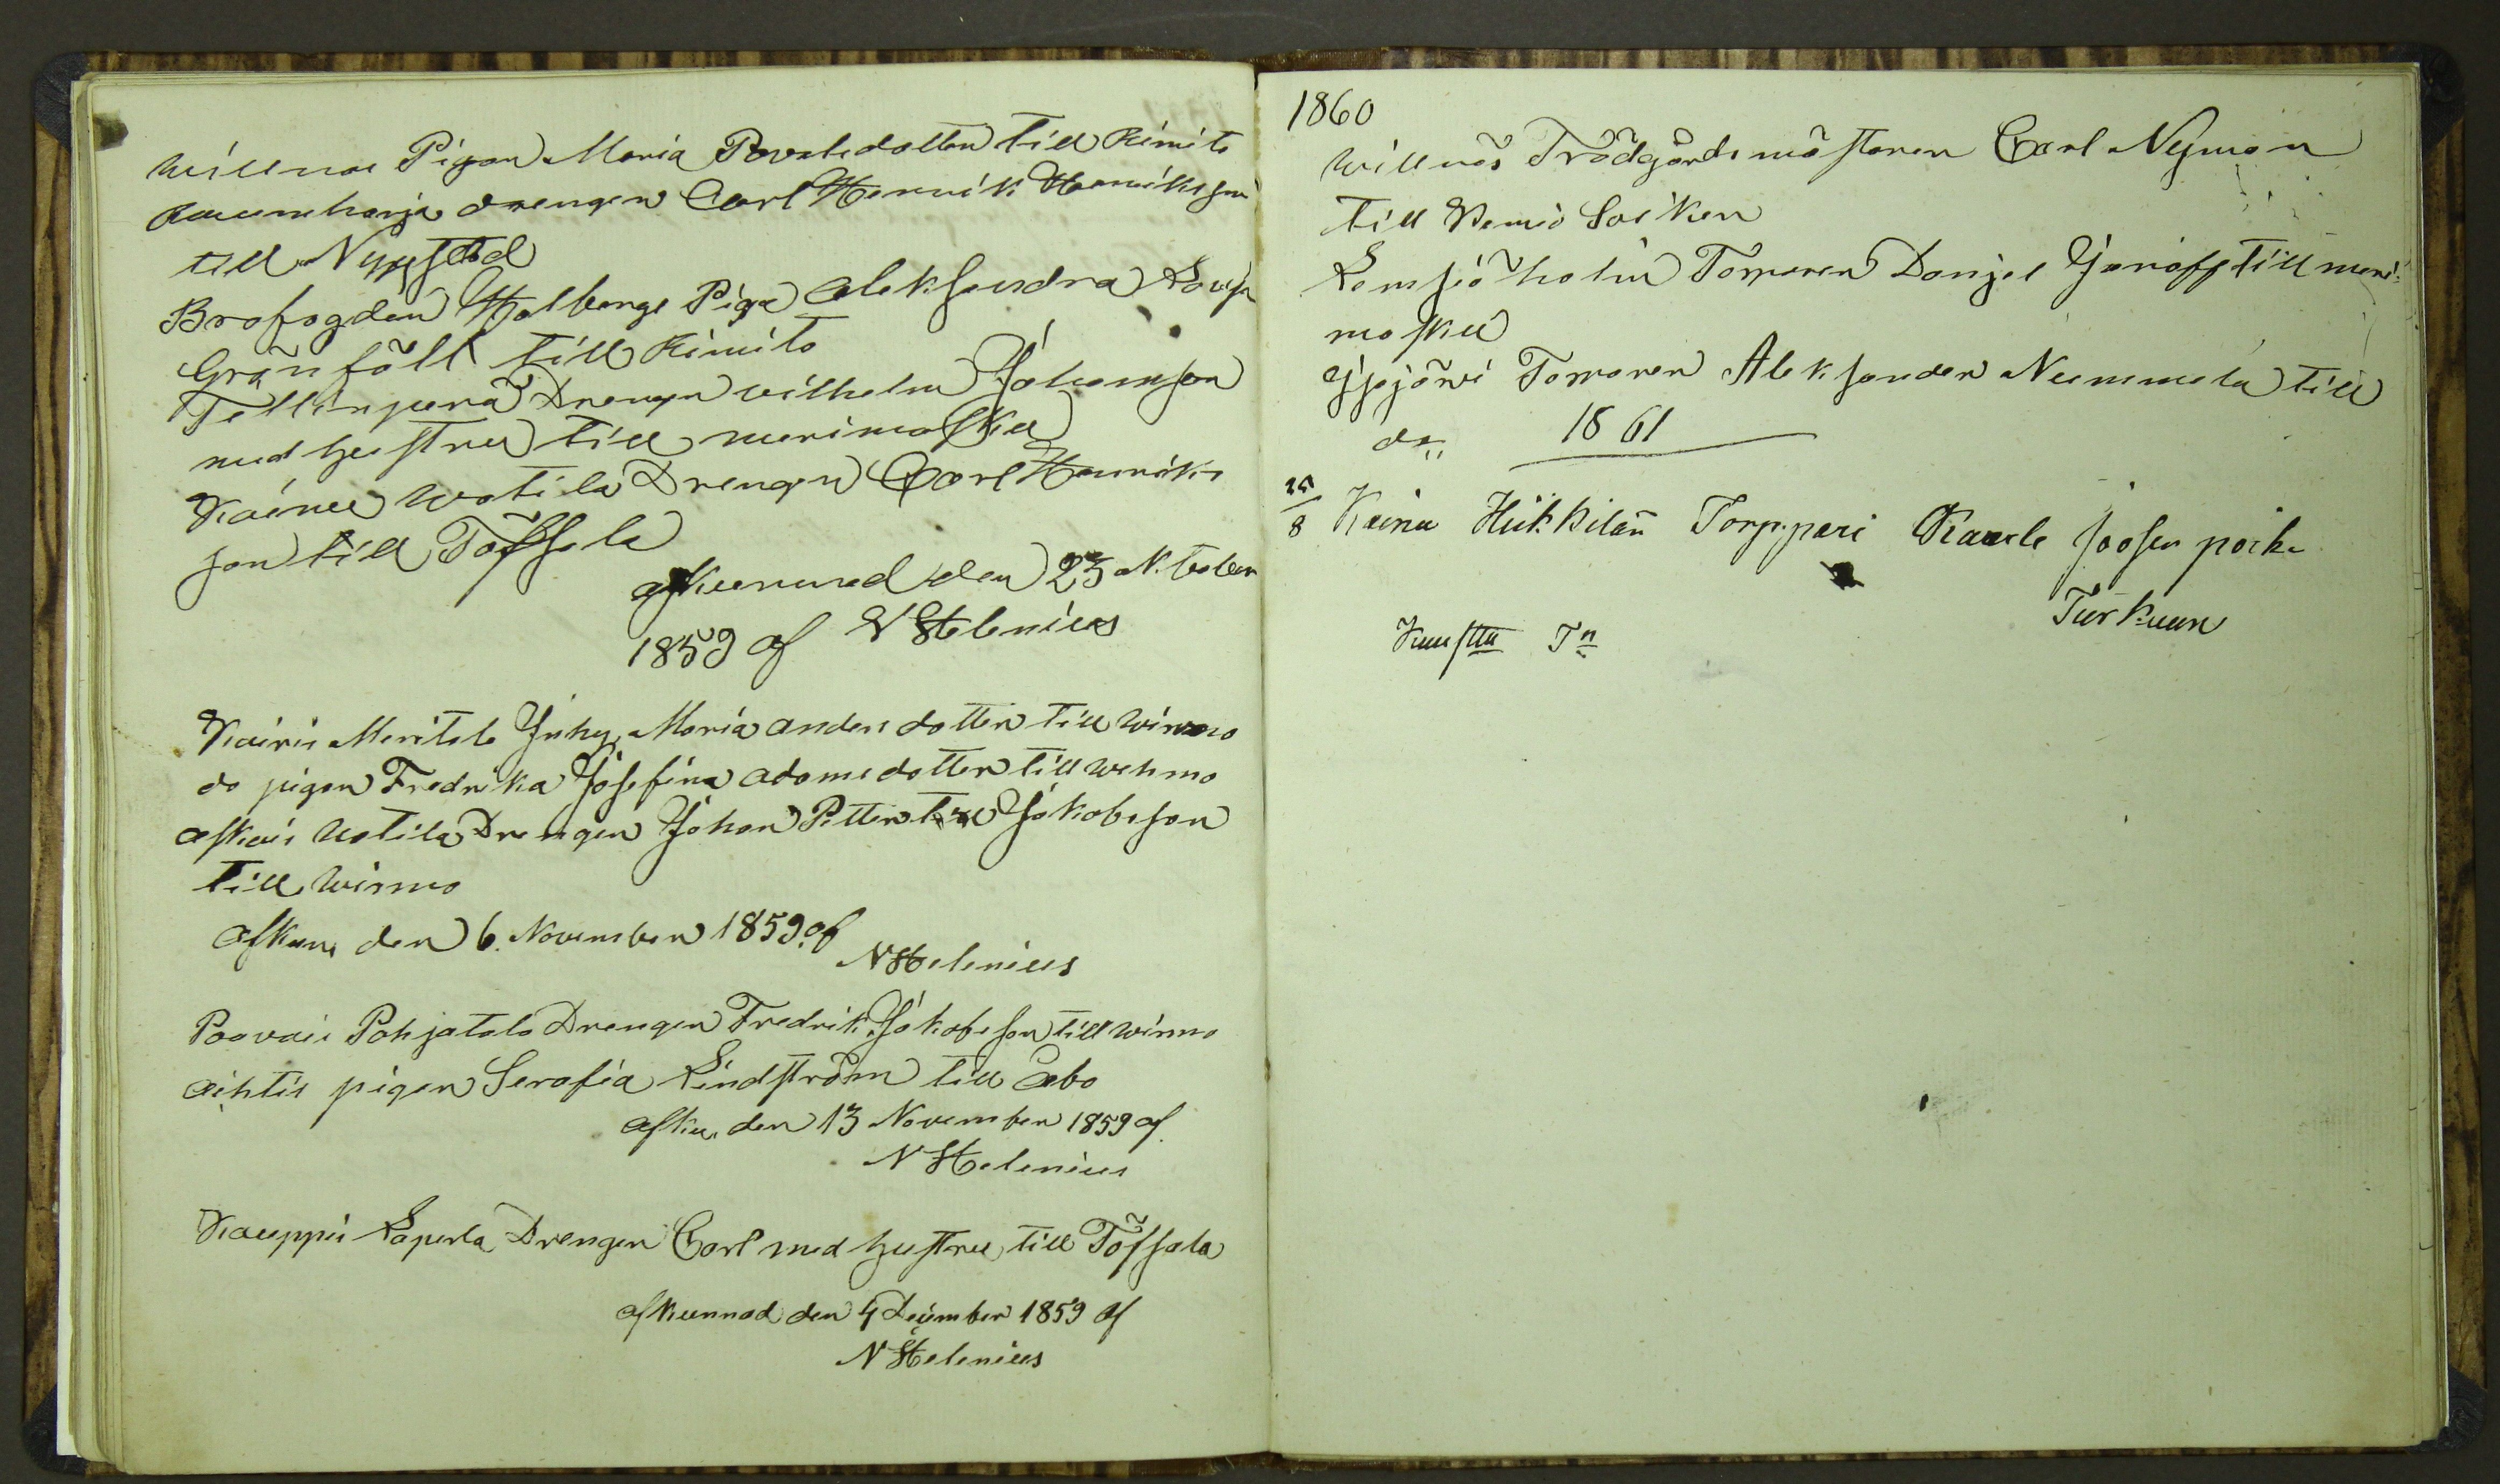 Willnäs Pigan Maria Povalsdotter till Kimito
Raumeharja drengen Carl Henrik Henriksson
till Nystad
Brofogden Holbergs Piga Aleksandra Lovisa
Gränfält till Kimito
Tellinperä Drengen Wilhelm Johansson
med hustru till Merimasku
Kainu Wotila Drengen Carl Henriks
son till Töfsala
afkunnad den 23 Oktober
1859 af N Helenius
Kairis Meritalo Inhy Maria Andersdotter till Wirmo
do pigan Fredrika Josefina Adamsdotter till Wehmo
Askais Uotila Drengen Johan Petter Jakobsson
till Wirmo
Afkun. den 6. November 1859 af
N Helenius
Poovais Pohjatalo Drengen Fredrik Jakobsson till Wirmo
Aihtis pigan Serafia Lindström till Åbo
Afkun. den 13 November 1859 af.
N Helenius
Kauppis Laperla Drengen Carl med hustru till Töfsala
Afkunnad den 4 December 1859 af
N Helenius
1860
Willnäs Trädgårdsmästaren Carl Nyman
till Pemio Socken
Lemsjöholm Torparen Danjel Granoff till Meri-
masku
Ypjärvi Torparen Aleksander Nummela till
do
1861
25/8 Kainu Heikkilän Torppari Kaarle Joosen poika
Turkuun
Kuustu Tn